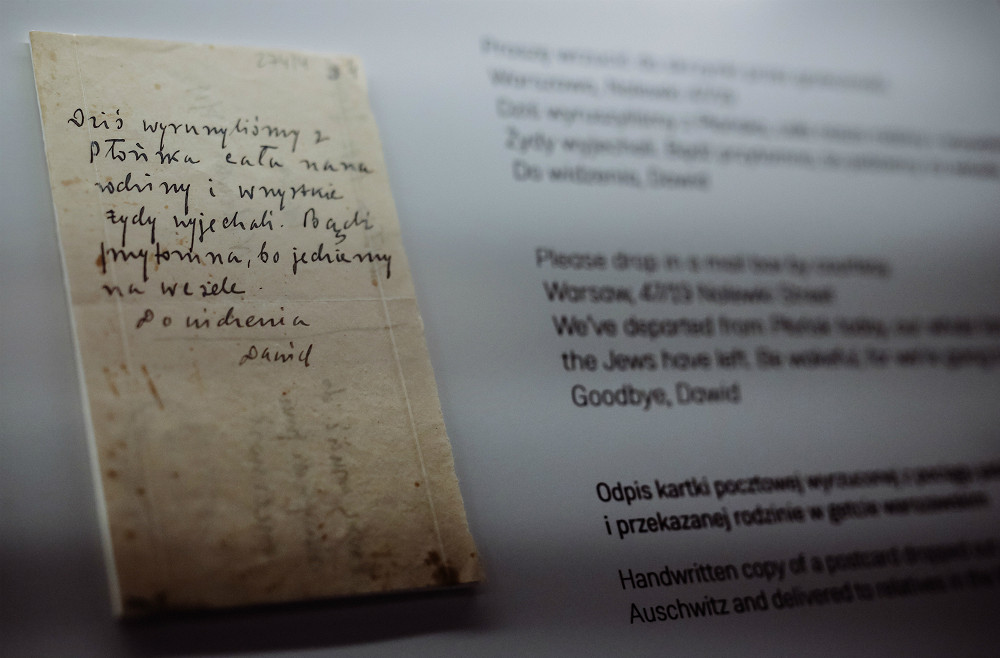 Dziś wyruszyliśmy z
Płońska cała nasza
rodziny i wszystkie
żydy wyjechali. Bądź
przytomna, bo jedziemy
na wesele.
Do widzenia
Dawid
Warszawa, Nalewki 47/19
Dziś wyruszyliśmy z Płońska, cała nasza
Żydy wyjechali. Bądź przytomna,
Do widzenia, Dawid
Please drop in a mail box by courtesy
Warsaw, 47/19 Nalewki Street
We've departed from Płońsk today, our whole
the Jews have left. Be wakeful, for we're going
Goodbye, Dawid
Odpis kartki pocztowej wyrzuconej z pociągu
i przekazanej rodzinie w getcie warszawskim
Handwritten copy of a postcard dropped
Auschwitz and delivered to relatives in the